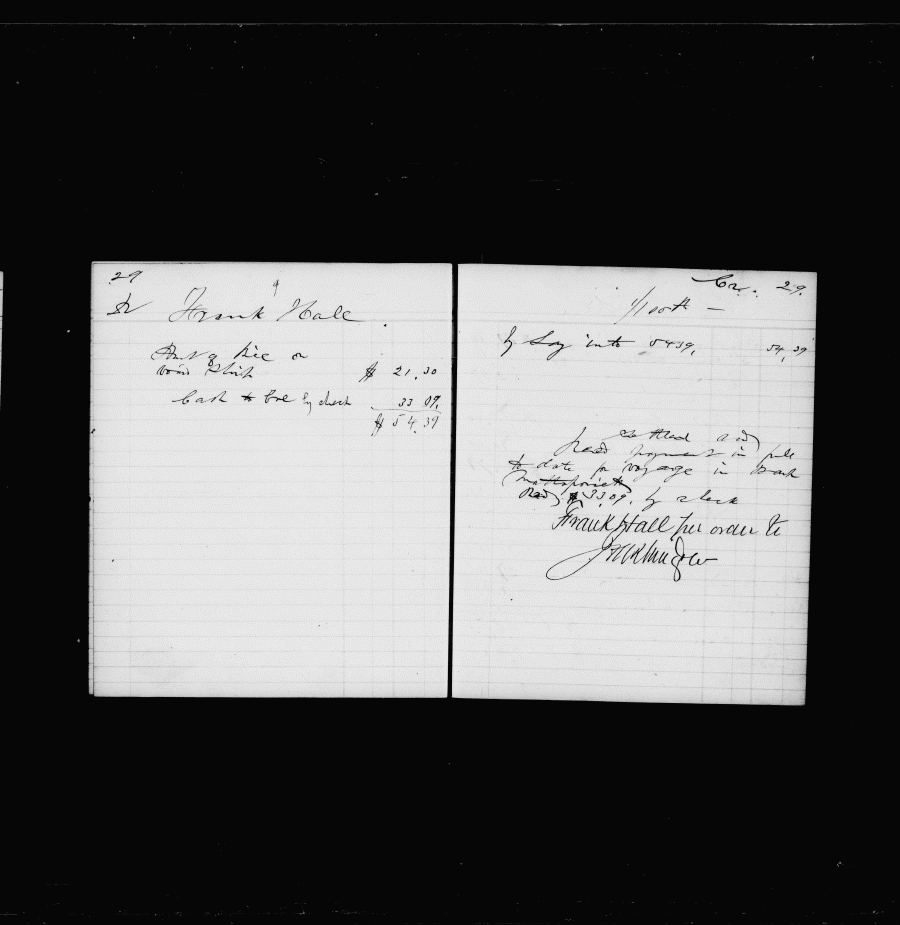 29
9
Dr Frank Hall
Amt of bill on
board Ship $ 21.30
Cash to bal by check 33 09.
$ 54.39
Cr. 29.
1/100th —
By Lay into 5439. 54.39
Settled and
payment in full
to date for voyage in Bark
Mattapoisett
$33.09. by check
Frank Hall per order to